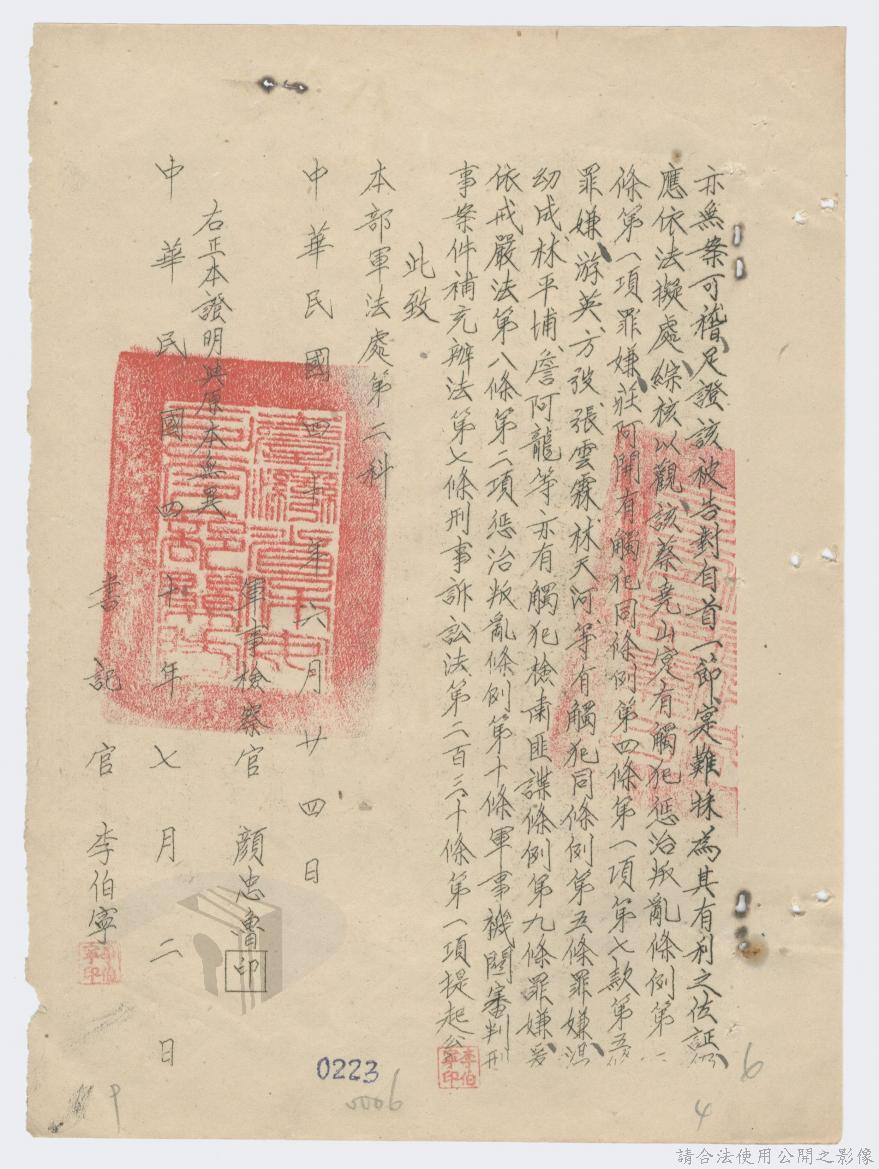 亦無案可稽足證該被告對自首一節寔難採為其有利之佐証
應依法擬處綜核以觀該蔡堯山寔有觸犯懲治叛亂條例第二
條第一項罪嫌莊阿開有觸犯同條例第四條第一項第七款第五條
罪嫌游英方弢張雲霖林天河等有觸犯同條例第五條罪嫌
幼成林平埔詹阿龍等亦有觸犯檢肅匪諜條例第九條罪嫌爰
依戒嚴法第八條第二項惩治叛亂條例第十條軍事機関審判刑
事案件補充辦法第七條刑事訴訟法第二百三十條第一項提起公
此致
本部軍法處第二科
中華民國四十年六月廿四日
軍事檢察官 顏忠魯 印
右正本證明與原本無異
中華民國四十年七月二日
書記官 李伯寧
李伯寧印
李伯寧印
0223
0006
6
4
9
請合法使用公開之影像